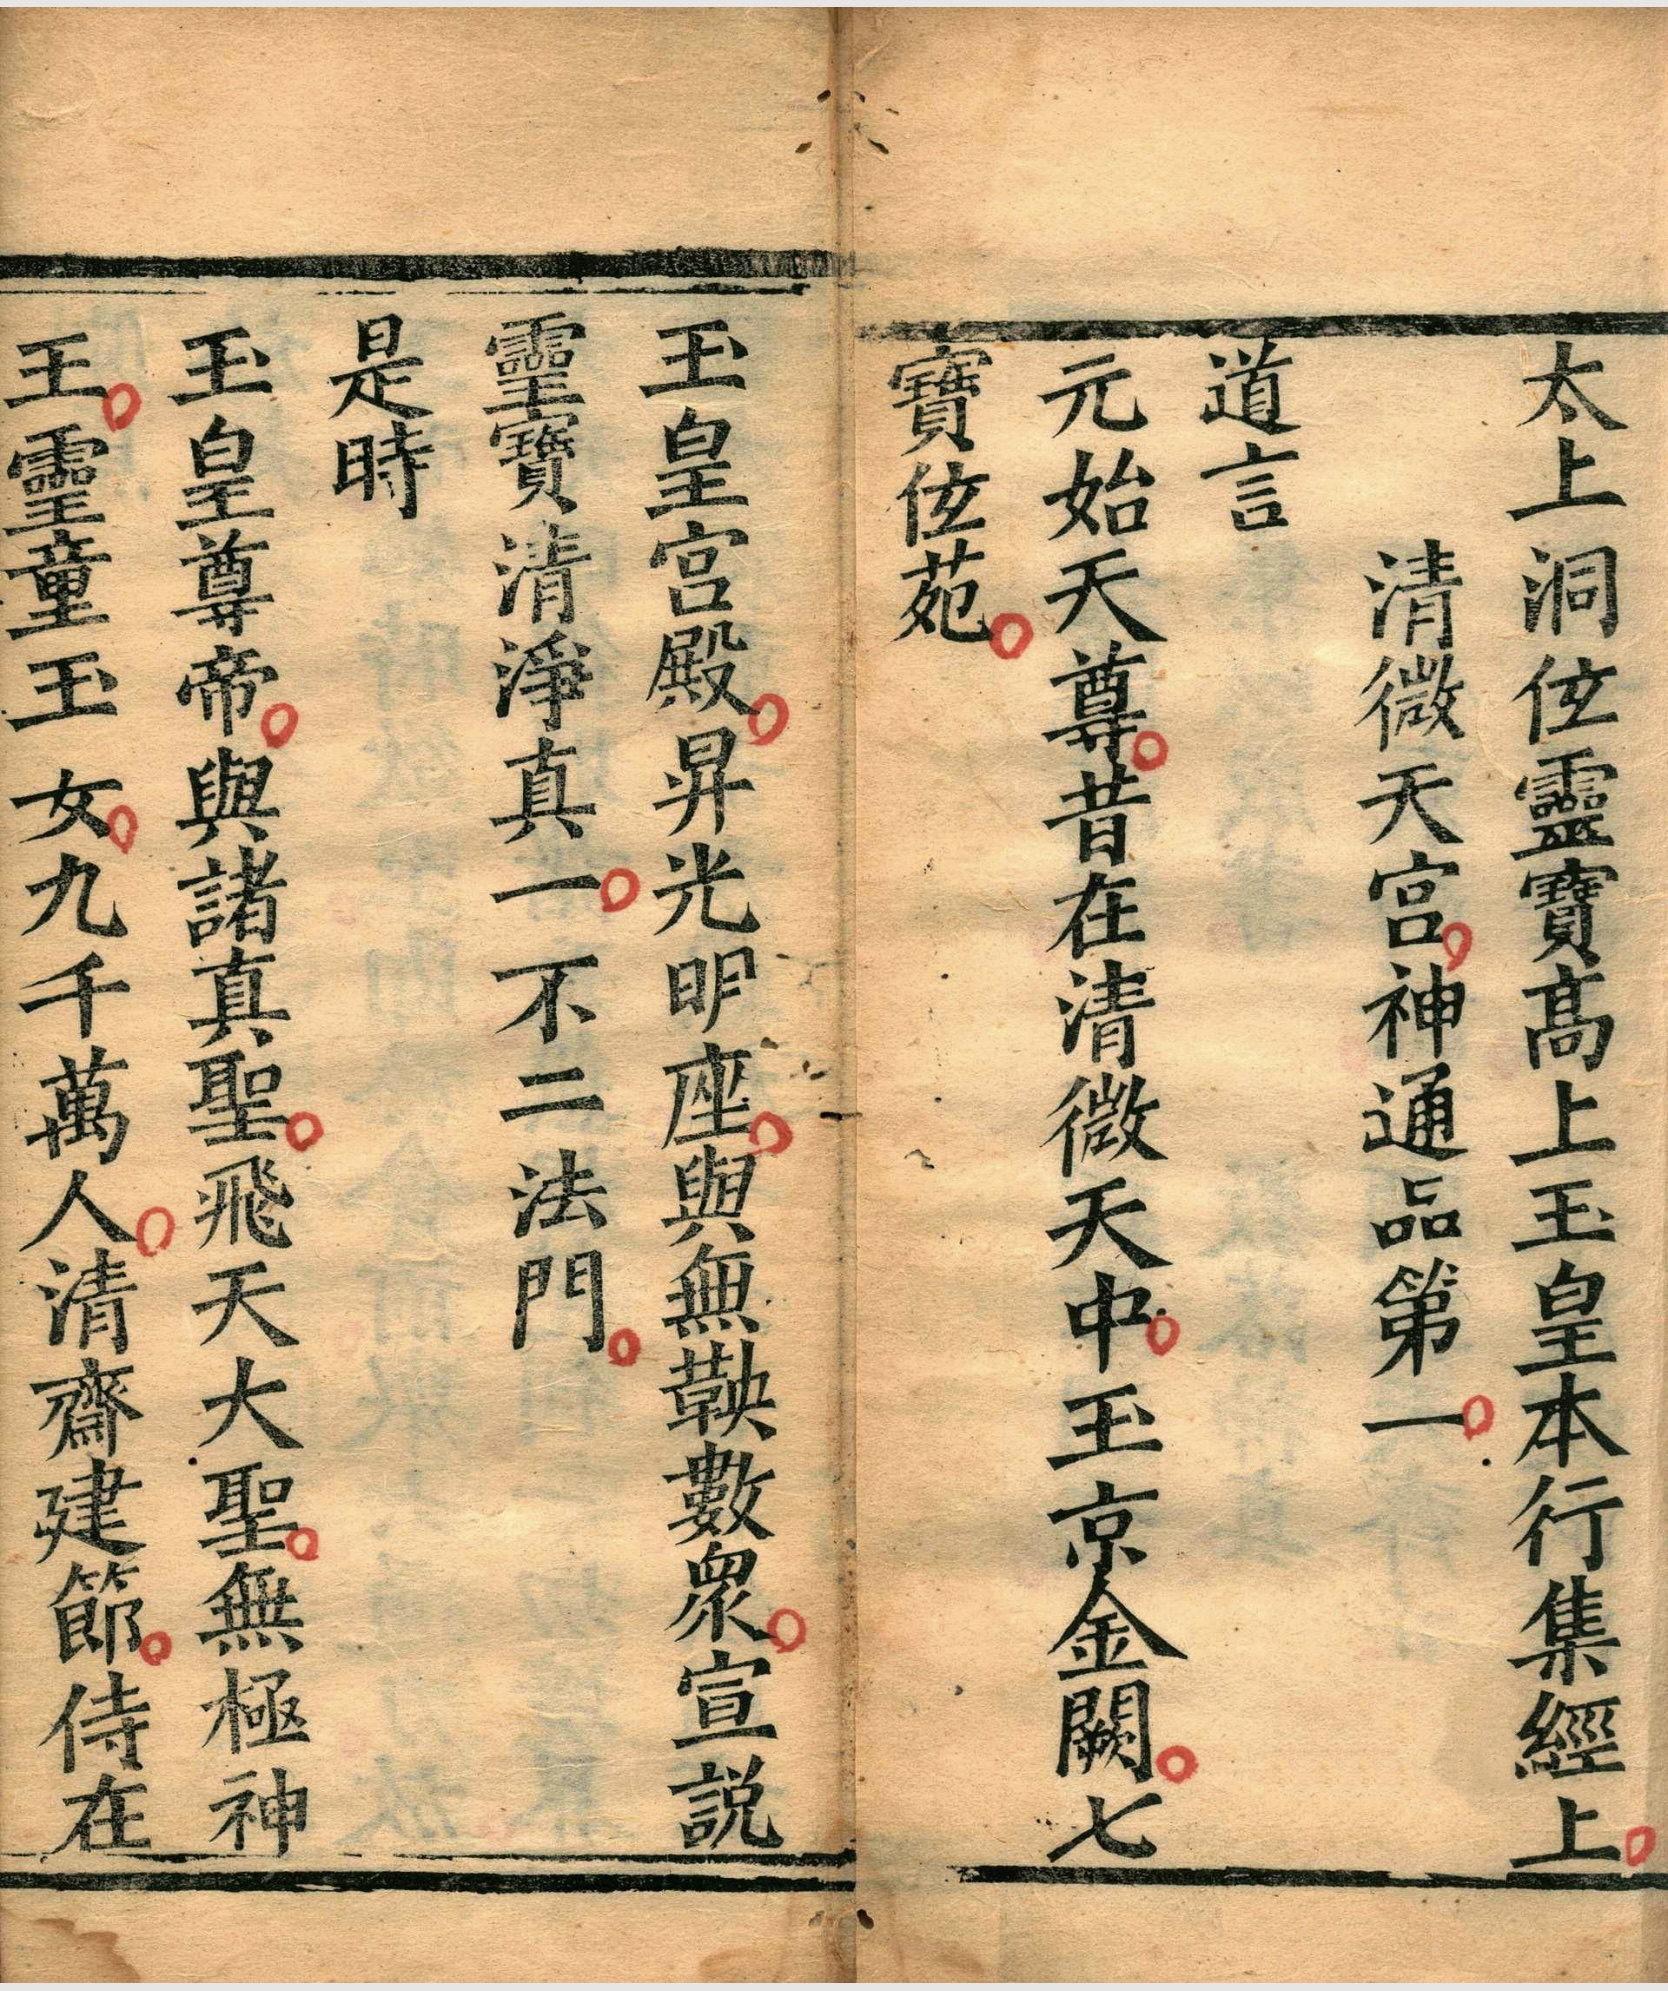 太上洞仾靈寶髙上玉皇本行集經上
清微天宮神通品第一
道言
元始天尊昔在清微天中玉京金闕七
寶仾苑
玉皇宮殿昇光明座與無鞅數衆宣説
靈寶清淨真一不二法門
是時
玉皇尊帝與諸真聖飛天大聖無極神
王靈童玉女九千萬人清齋建節侍在